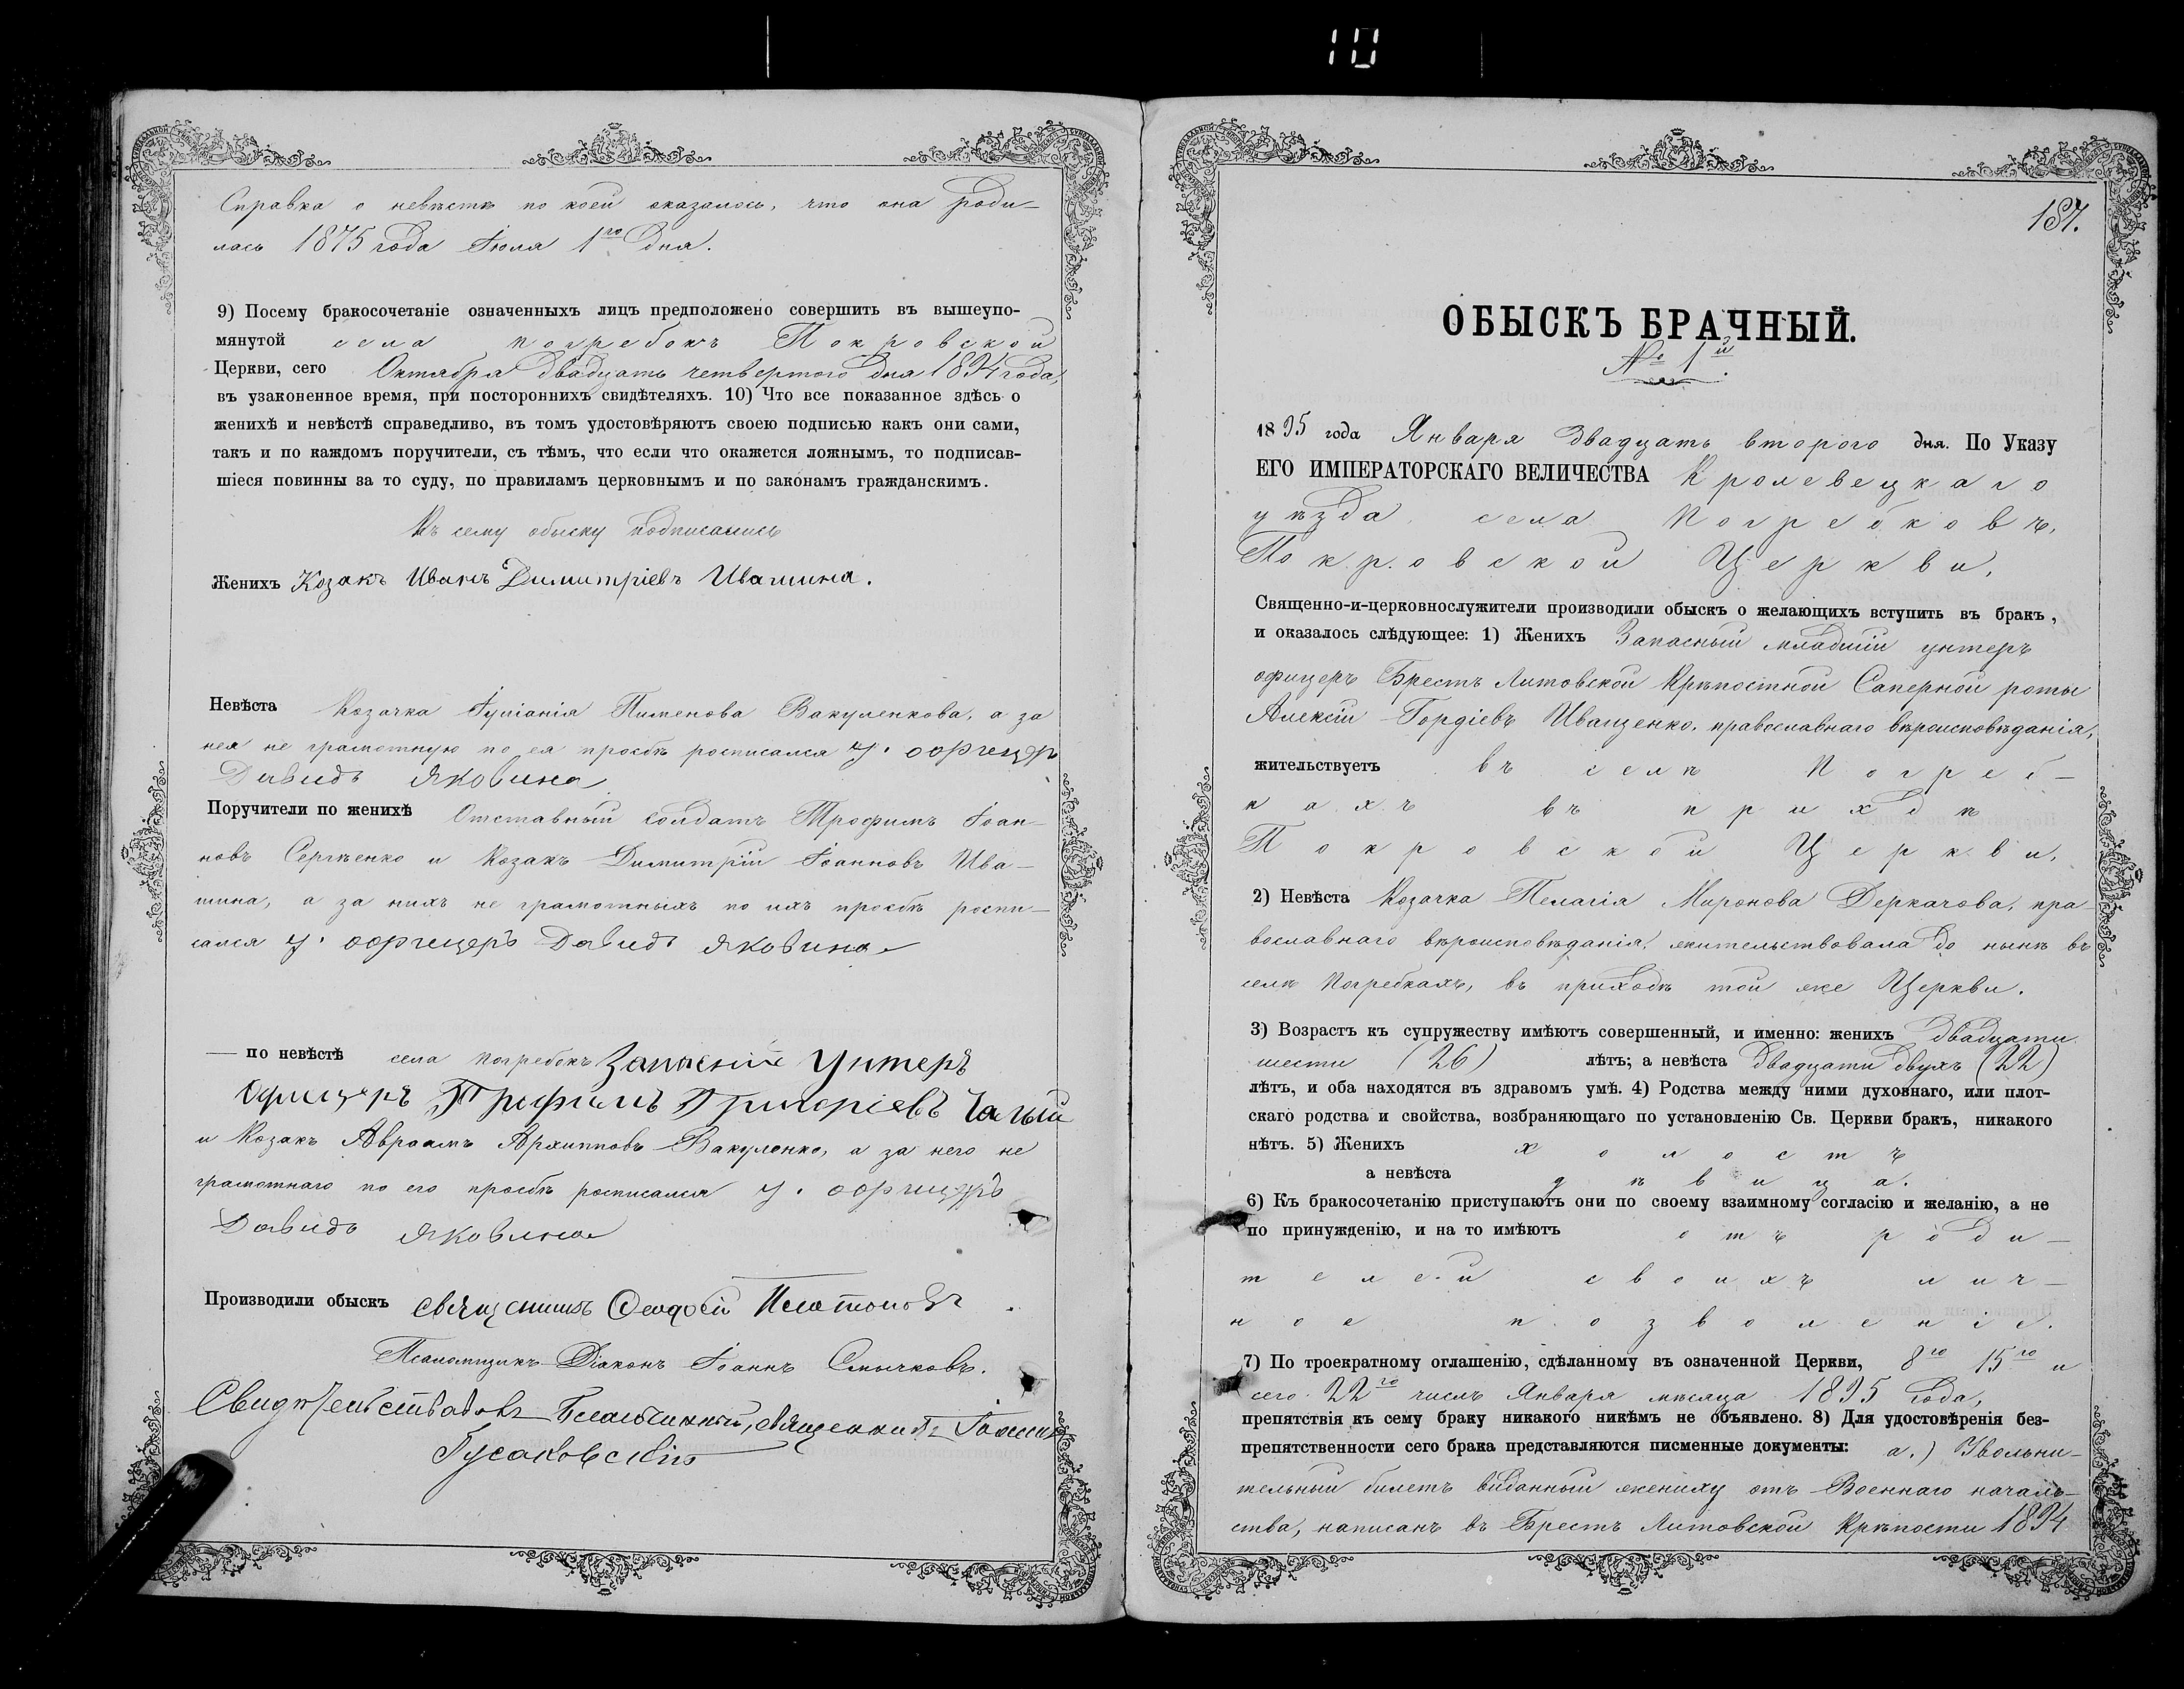 10
Справка о невѣстѣ по коей оказалось, что она роди-
лась 1875 года Іюля 1го дня.
9) Посему бракосочетаніе означенныхъ лицъ предположено совершить въ вышеупо-
мянутой села Погребокъ Покровской
Церкви, сего Октября двадцать четвертого дня 1894 года,
въ узаконенное время, при постороннихъ свидѣтеляхъ. 10) Что все показанное здѣсь о
женихѣ и невѣстѣ справедливо, въ томъ удостовѣряютъ своею подписью какъ они сами,
такъ и по каждомъ поручители, съ тѣмъ, что если что окажется ложнымъ, то подписав-
шіеся повинны за то суду, по правиламъ церковнымъ и по законамъ гражданскимъ.
Къ сему обыску подписались
Женихъ Козакъ Иванъ Димитріевъ Ивашина.
Невѣста Козачка Іуліанія Пименова Вакуленкова, а за
нея не грамотную по ея просбѣ росписался у. оофицеръ
Давидъ Яковина
Поручители по женихѣ Отставный солдатъ Трофимъ Іоан-
новъ Сергѣенко и Козакъ Димитрій Іоанновъ Ива-
шина, а за нихъ не грамотныхъ по ихъ просбѣ роспи-
сался у. оофицеръ Давидъ Яковина
— по невѣстѣ села Погребокъ Запасніе Унтеръ
Офицеръ Трофимъ Григоріевъ Чалый
и Козакъ Авраамъ Архиповъ Вакуленко, а за него не
грамотнаго по его просбѣ росписался у. оофицеръ
Давидъ Яковина
Производили обыскъ священникъ Феодосій Платоновъ.
Псаломщикъ Діаконъ Іоаннъ Смычковъ.
Свидѣтельствовалъ Благочинный, священникъ Іоаннъ
Гусаковскій
187.
ОБЫСКЪ БРАЧНЫЙ.
№ 1й.
1895 года Января двадцать второго дня. По Указу
ЕГО ИМПЕРАТОРСКАГО ВЕЛИЧЕСТВА Кролевецкаго
уѣзда села Погребковъ,
Покровской Церкви,
Священно-и-церковнослужители производили обыскъ о желающихъ вступить въ бракъ,
и оказалось слѣдующее: 1) Женихъ Запасный младшій унтеръ
офицеръ Брестъ Литовской Крѣпостной Саперной роты
Алексій Гордіевъ Иващенко, православнаго вѣроисповѣданія,
жительствуетъ въ селѣ Погреб-
кахъ въ приходѣ
Покровской Церкви.
2) Невѣста Козачка Пелагія Миронова Деркачова, пра
вославнаго вѣроисповѣданія, жительствовала до нынѣ въ
селѣ Погребкахъ, въ приходѣ той же Церкви.
3) Возрастъ къ супружеству имѣютъ совершенный, и именно: женихъ двадцати
шести (26) лѣтъ; а невѣста двадцати двухъ (22)
лѣтъ, и оба находятся въ здравомъ умѣ. 4) Родства между ними духовнаго, или плот-
скаго родства и свойства, возбраняющаго по установленію Св. Церкви бракъ, никакого
нѣтъ. 5) Женихъ холостъ
а невѣста дѣвица.
6) Къ бракосочетанію приступаютъ они по своему взаимному согласію и желанію, а не
по принужденію, и на то имѣютъ отъ роди-
телей своихъ лич-
ное позволеніе.
7) По троекратному оглашенію, сдѣланному въ означенной Церкви, 8го 15го и
сего 22го числъ Января мѣсяца 1895 года,
препятствія къ сему браку никакого никѣмъ не объявлено. 8) Для удостовѣренія без-
препятственности сего брака представляются писменные документы: а.) Увольни-
тельный билетъ виданный жениху отъ Военнаго началь-
ства, написанъ въ Брестъ Литовской Крѣпости 1894